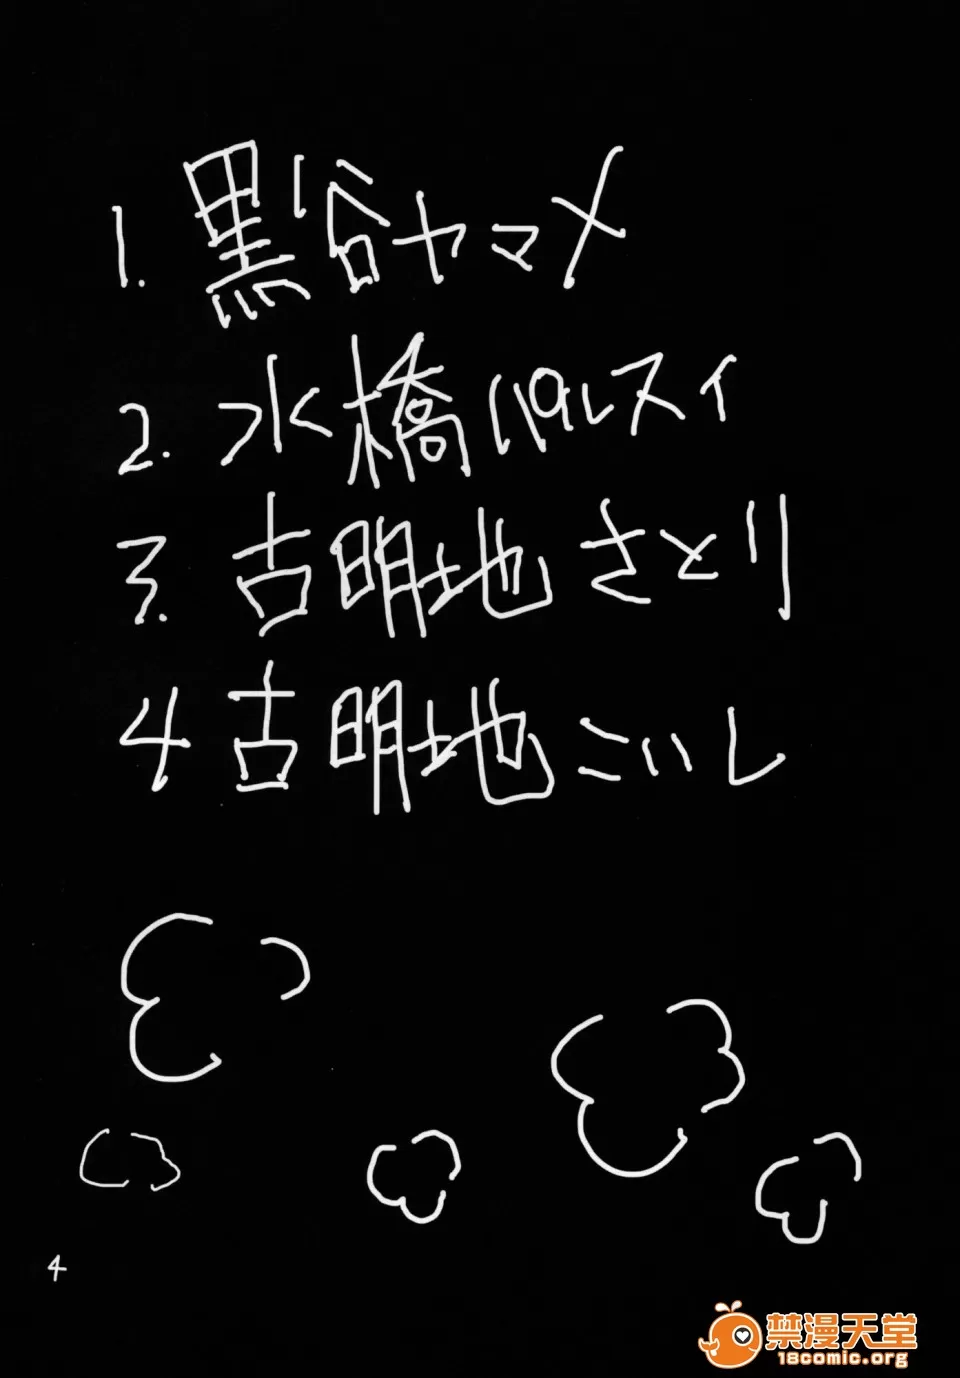 1. 黒谷ヤマメ
2. 水橋パルスィ
3. 古明地さとり
4 古明地こいし
4
禁漫天堂
18comic.org